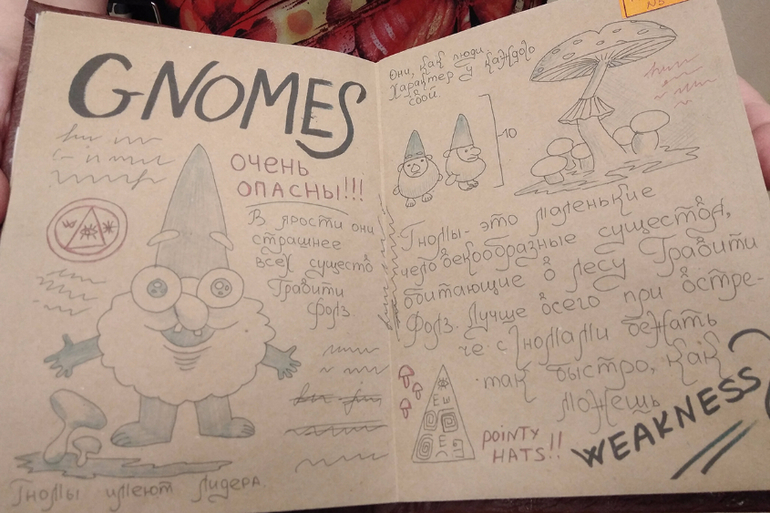 GNOMES
ОЧЕНЬ
ОПАСНЫ!!!
В ярости они
страшнее
всех существ
Гравити
Фолз
Гномы имеют лидера.
Они, как люди,
характер у каждого
свой.
10
Гномы - это маленькие
человекообразные существа,
обитающие в лесу Гравити
Фолз. Лучше всего при встре-
че с гномами бежать
так быстро, как
можешь
POINTY
HATS!!
WEAKNESS?